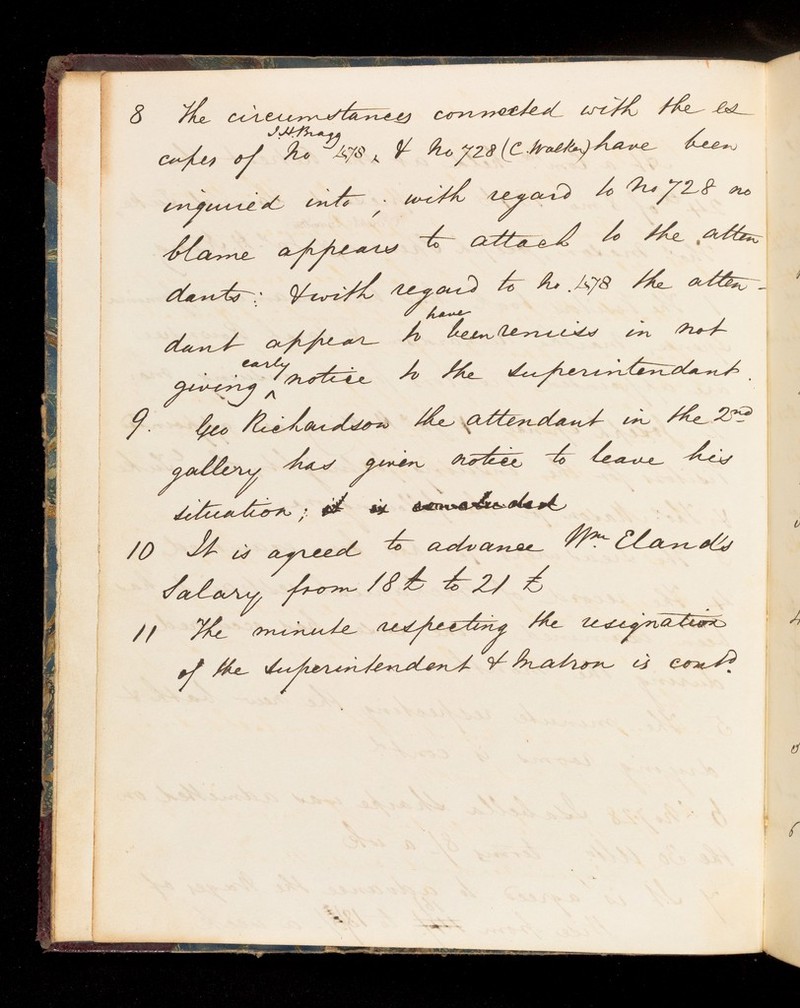 8 The circumstances connected with the es
J.H. Bragg
capes of No 578, & No 728 (C. Walker) have been
inquired into; with regard to No 728 no
blame appears to attach to the atten
dants: & with regard to No. 578 the atten-
have
dant appear to been remiss in not
early
giving notice to the superintendant.
9. Geo Richardson the attendant in the 2nd
gallery has given notice to leave his
situation; it is concluded
10 It is agreed to advance Wm Eland's
Salary from 18£ to 21£
11 The minute respecting the resignation
of the superintendent & Matron is contd.